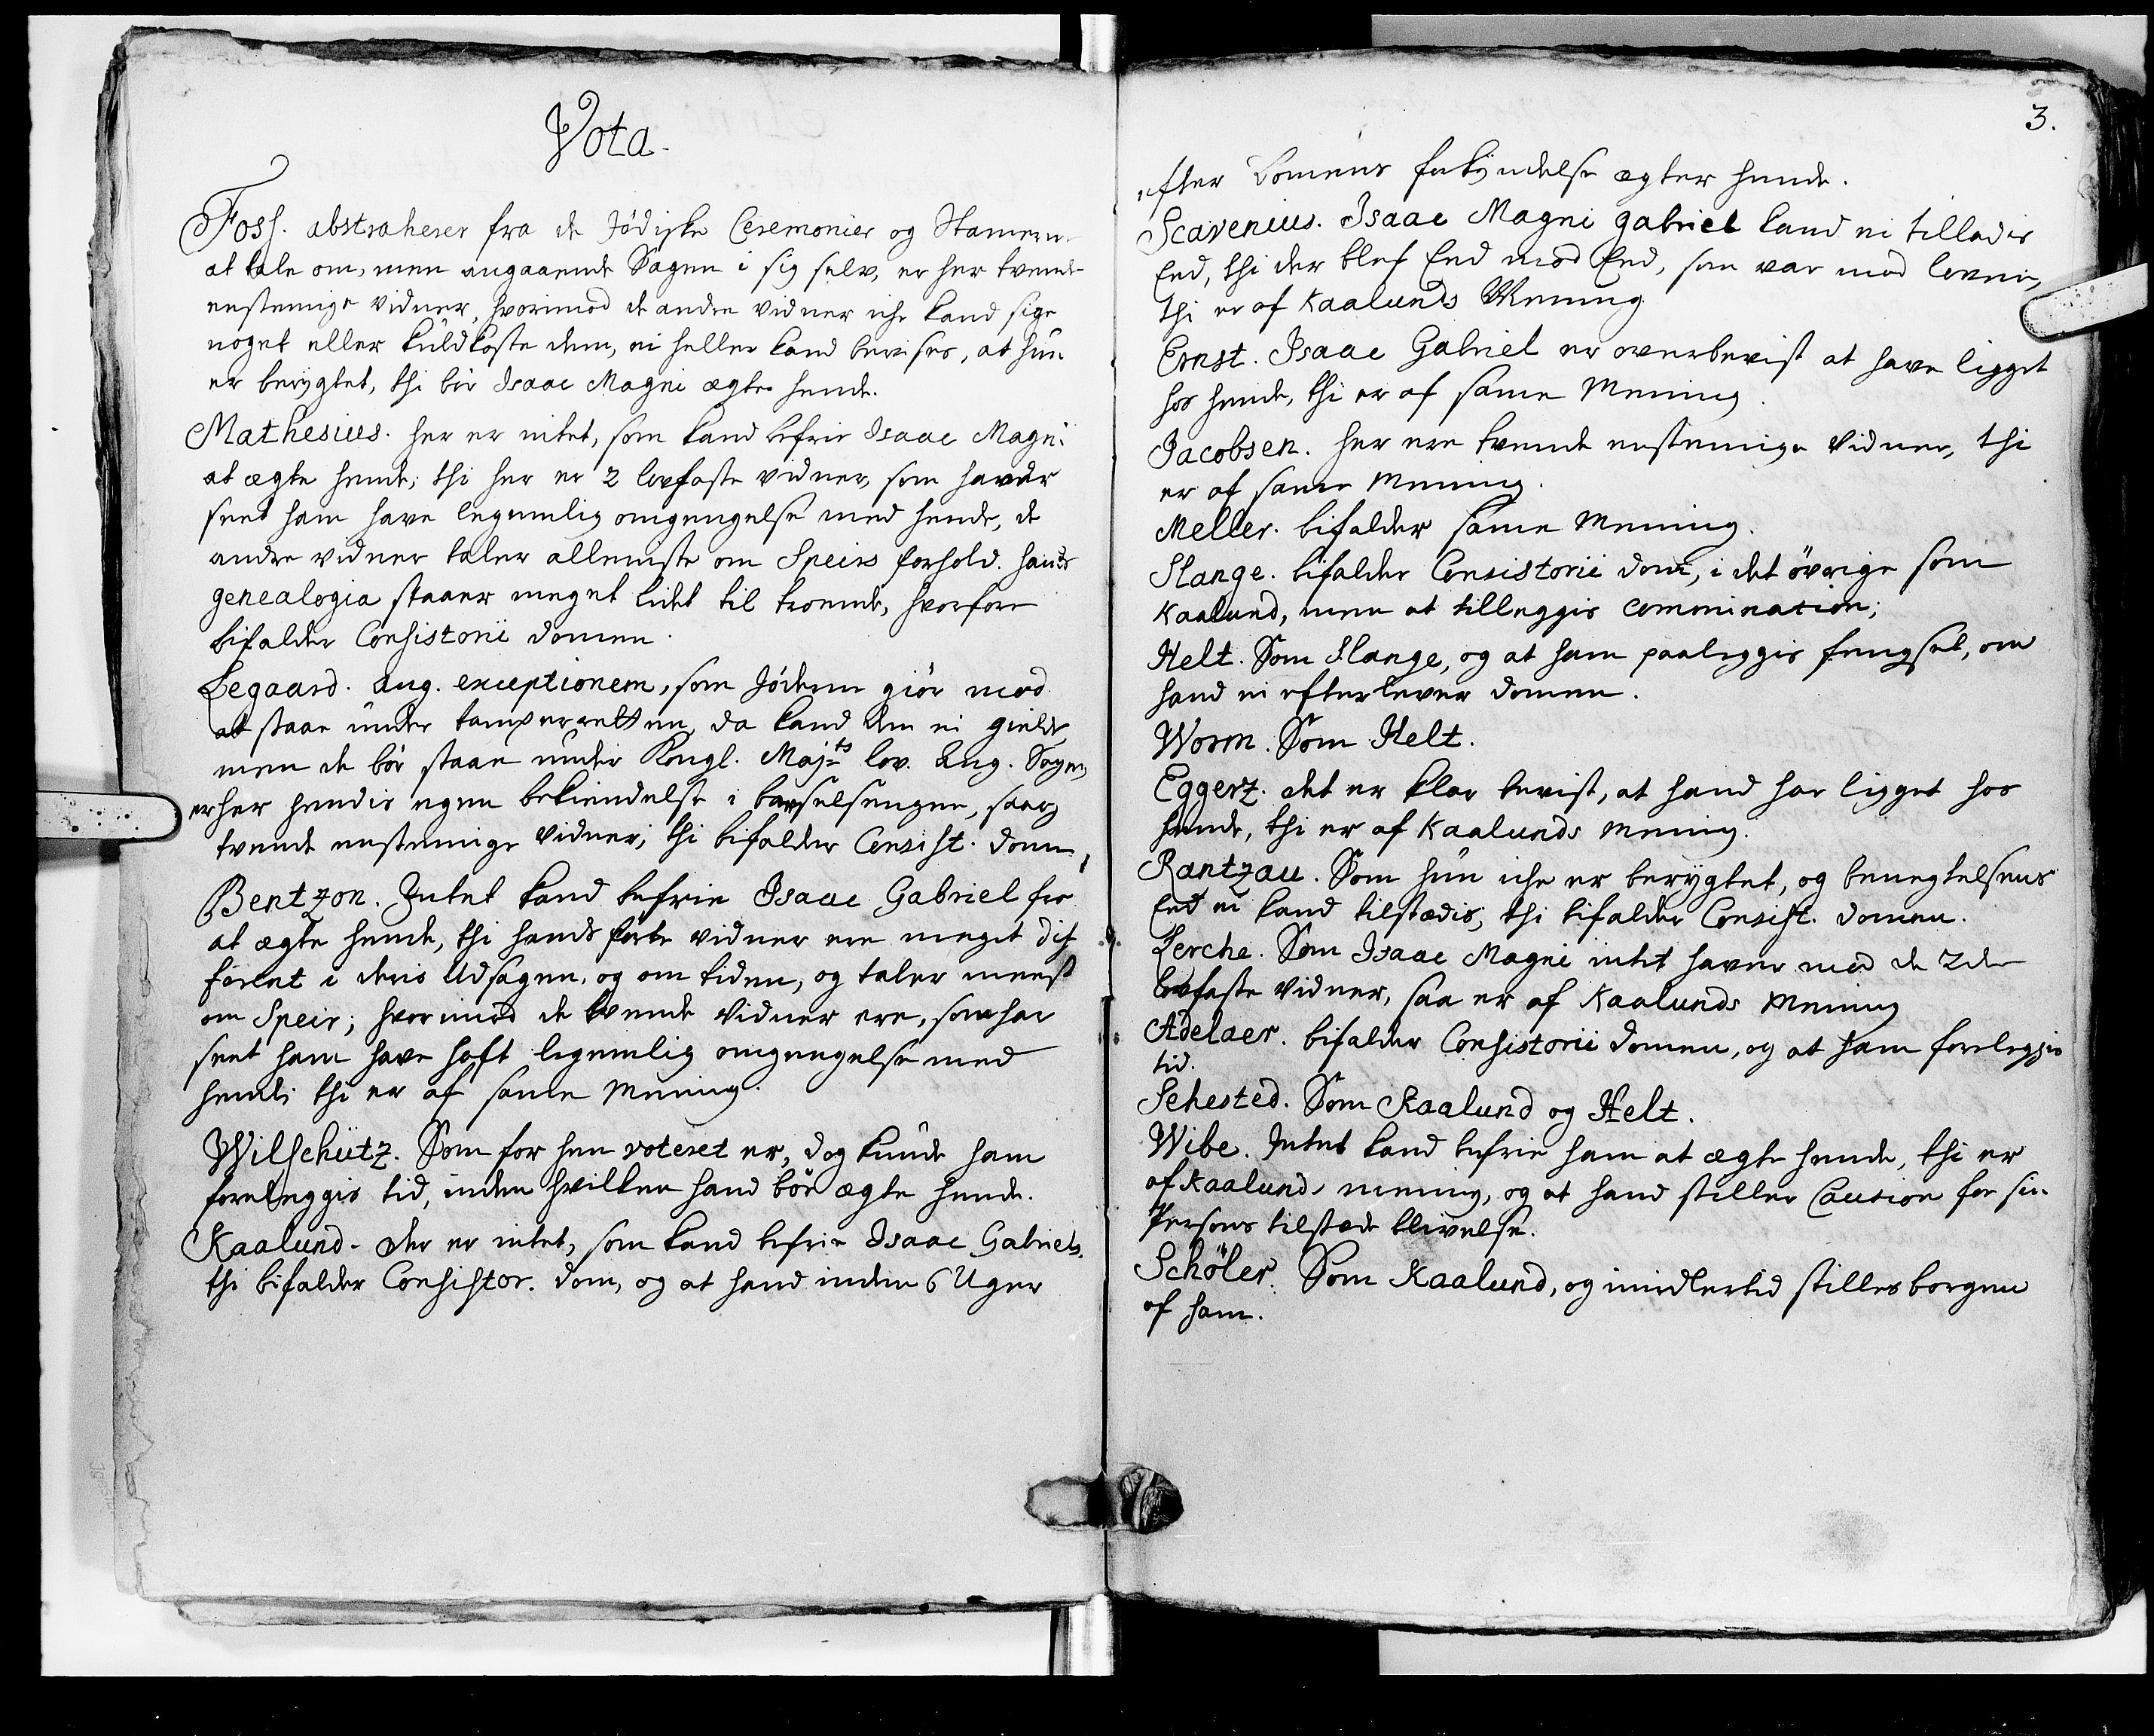 Vota.
Foss. abstraherer fra de Jödiske Ceremonier og Stamerne
at tale om, men angaaende Sagen i sig selv, er her tvende
eenstemige vidner, hvorimod de andre vidner iche kand sige
noget eller kuldkaste dem, ei heller kand bevises, at hun
er berygtet, thi bör Isaac Magni ægte hende.
Mathesius. her er intet, som kand befrie Isaac Magni
at ægte hende; thi her er 2 lovfaste vidner, som haver
seet ham have legemlig omgengelse med hende, de
andre vidner taler allemeste om Speirs forhold. hands
genealogia staaer meget lidet til troende, hvorfore
bifalder Consistorii domen.
Legaard. ang. exceptionem, som Jöderne giör mod
at staae under tamperretten, da kand den ei gielde
men de bör staae under Kongl. Majts lov. Ang. Sagen,
er her hendis egen bekiendelse i barselsengen, saa og
tvende eenstemige vidner; thi bifalder Consist. domen,
Bentzon. Intet kand befrie Isaac Gabriel fra
at ægte hende, thi hands förte vidner ere meget dif
ferent i deris Udsagen, og om tiden, og taler meest
om Speir; hvorimod de tvende vidner ere, som har
seet ham have haft legemlig omgengelse med
hende; thi er af samme Mening.
Wilschütz. Som for hen voteret er, dog kunde ham
foreleggis tid, inden hvilken hand bör ægte hende.
Kaalund. der er intet, som kand befrie Isaac Gabriel,
thi bifalder Consistor. dom, og at hand inden 6 Uger
3.
efter Domens forkyndelse ægter hende.
Scavenius. Isaac Magni Gabriel kand ei tilladis
Eed, thi der blef Eed mod Eed, som var mod loven,
thi er af Kaalunds Mening
Ernst. Isaac Gabriel er overbevist at have ligget
hos hende, thi er af same Mening.
Jacobsen. her ere tvende eenstemige vidner, thi
er af same Mening.
Meller. bifalder same Mening.
Slange. bifalder Consistorii dom, i det övrige som
Kaalund, men at tilleggis commination;
Helt. Som Slange, og at ham paaleggis fengsel, om
hand ei efterlever domen.
Worm. Som Helt.
Eggerz. det er klar bevist, at hand har ligget hos
hende, thi er af Kaalunds mening.
Rantzau. Som hun iche er berygtet, og benegtelsens
Eed ei kand tilstædis, thi bifalder Consist. domen.
Lerche. Som Isaac Magni intet haver med de 2de
lovfaste vidner, saa er af Kaalunds Mening
Adelaer. bifalder Consistorii domen, og at ham foreleggis
tid.
Sehested. Som Kaalund og Helt.
Wibe. Intet kand befrie ham at ægte hende, thi er
af Kaalunds mening, og at hand stiller Caution for sin
Persons tilstæde blivelse.
Schöler. Som Kaalund, og imidlertid stilles borgen
af ham.